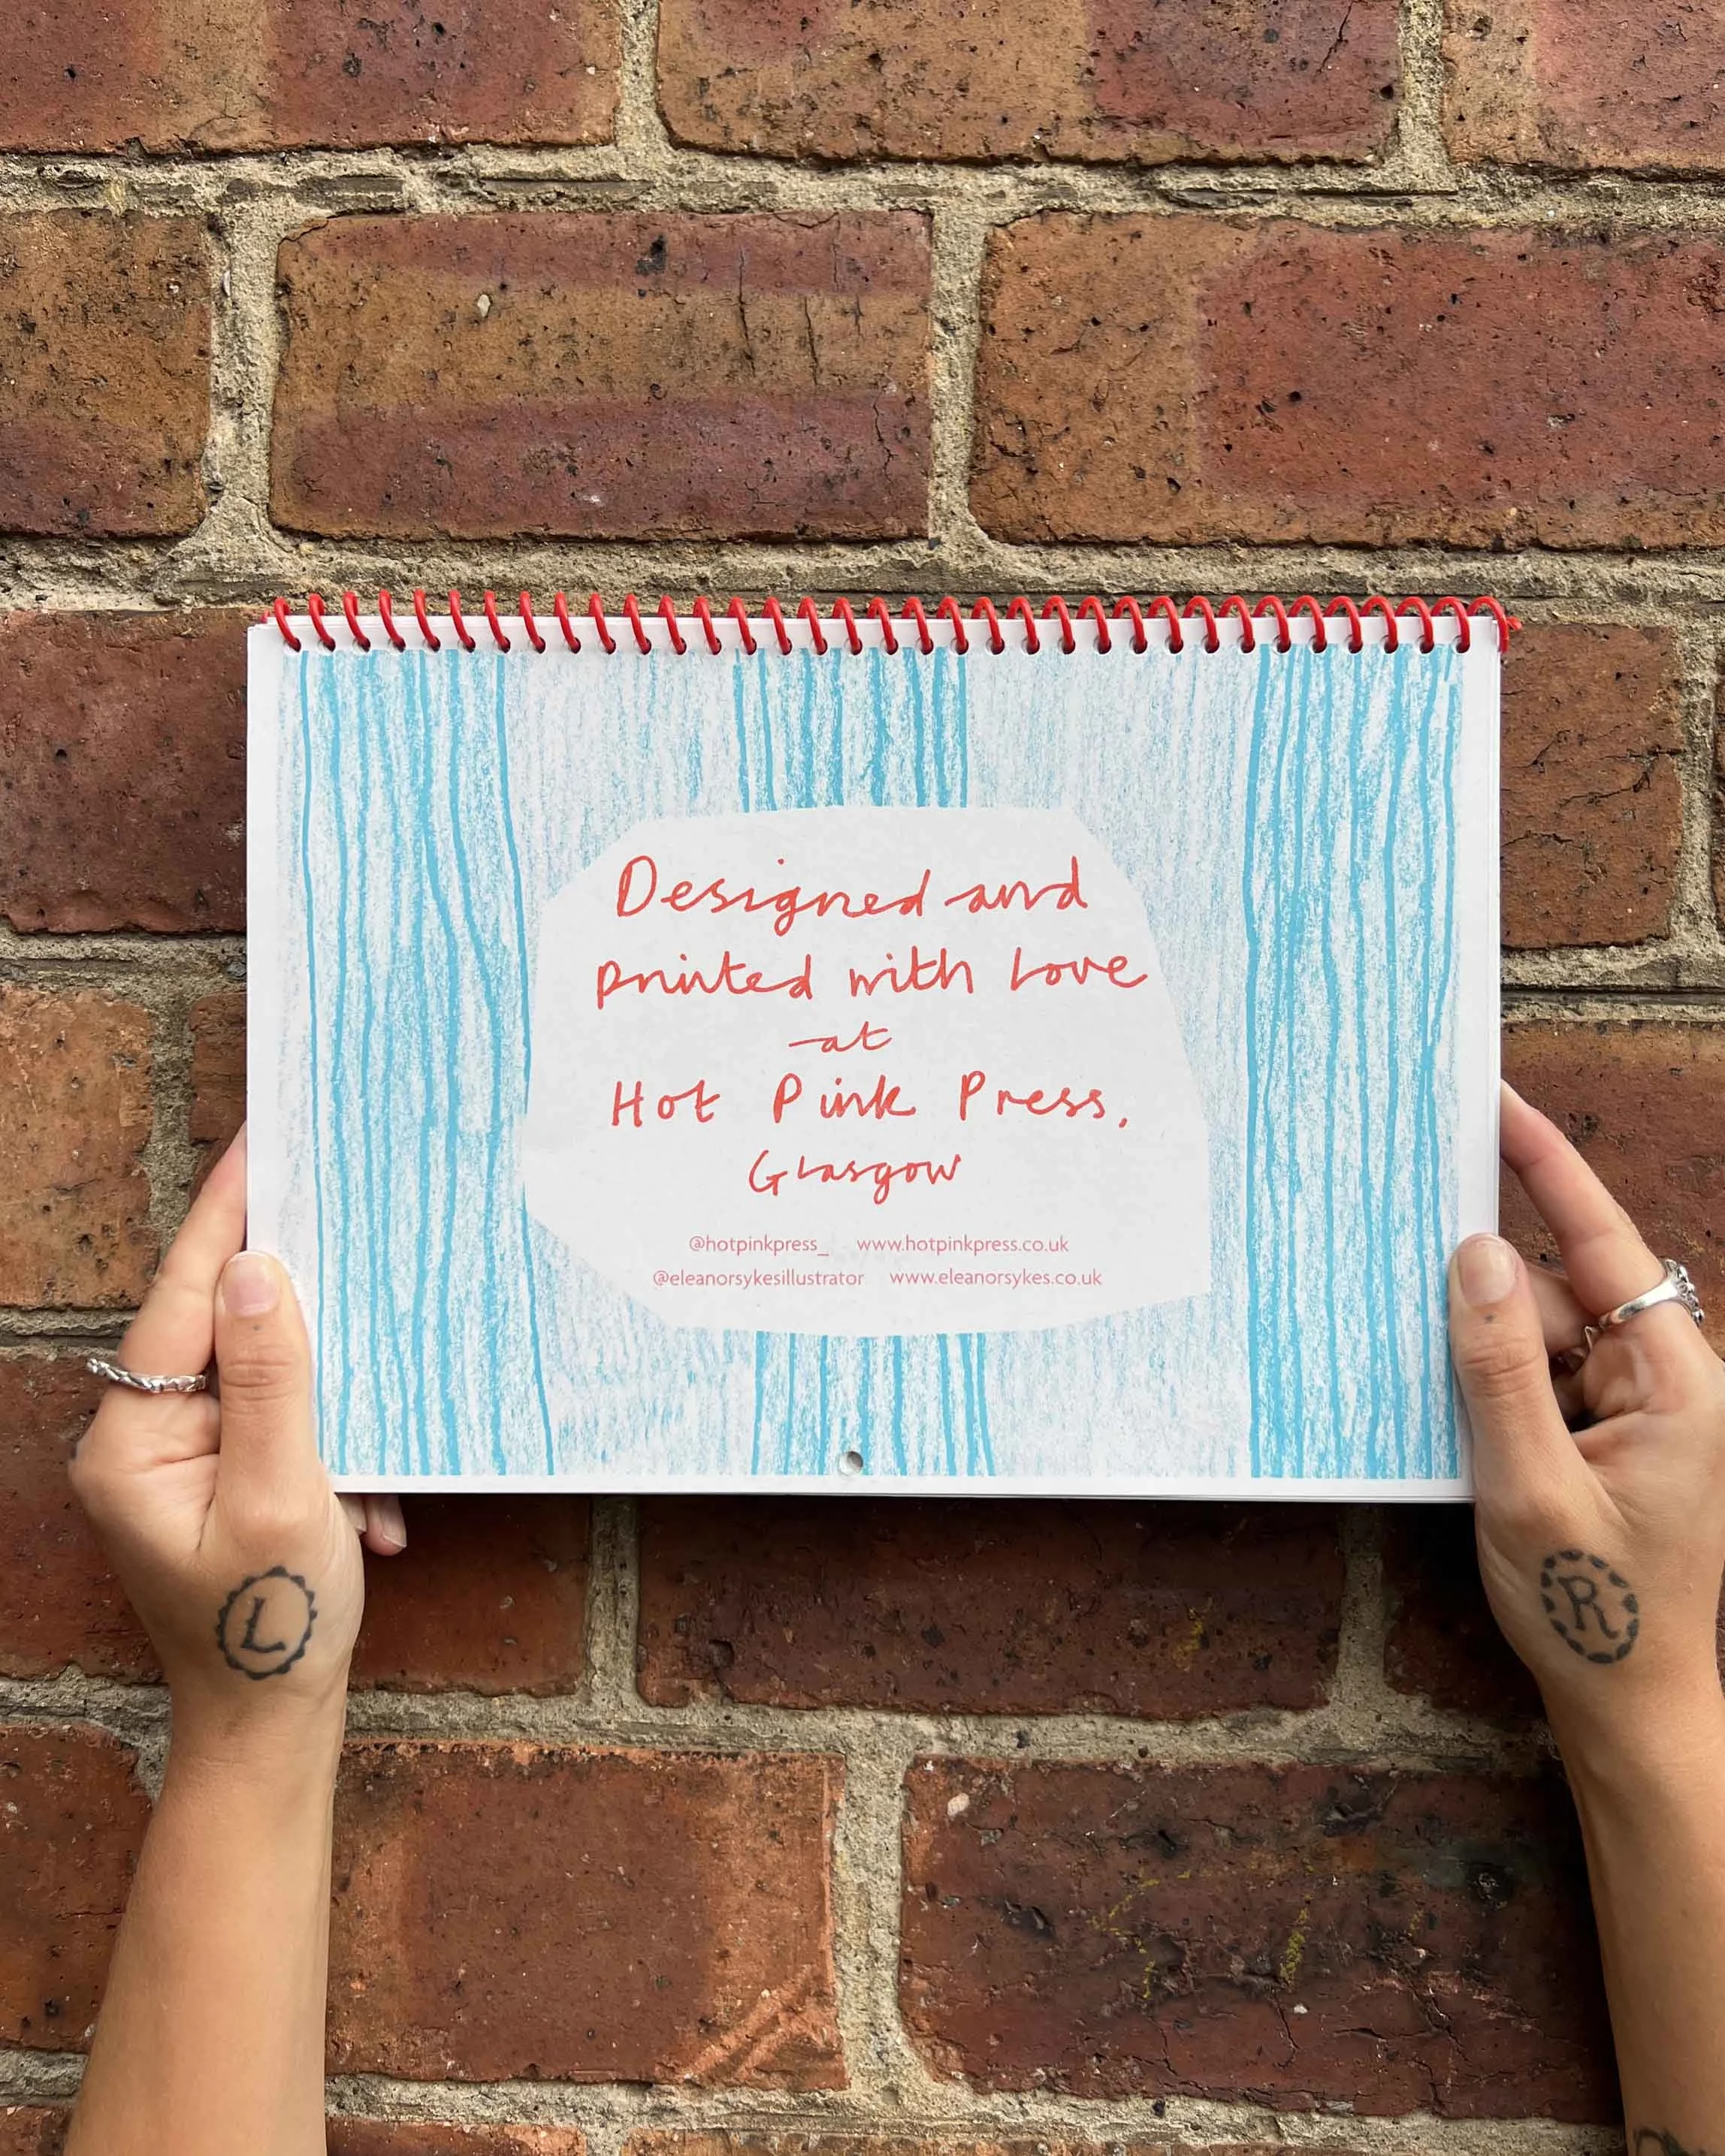 Designed and
printed with love
at
Hot Pink Press,
Glasgow
@hotpinkpress_ www.hotpinkpress.co.uk
@eleanorsykesillustrator www.eleanorsykes.co.uk
L
R